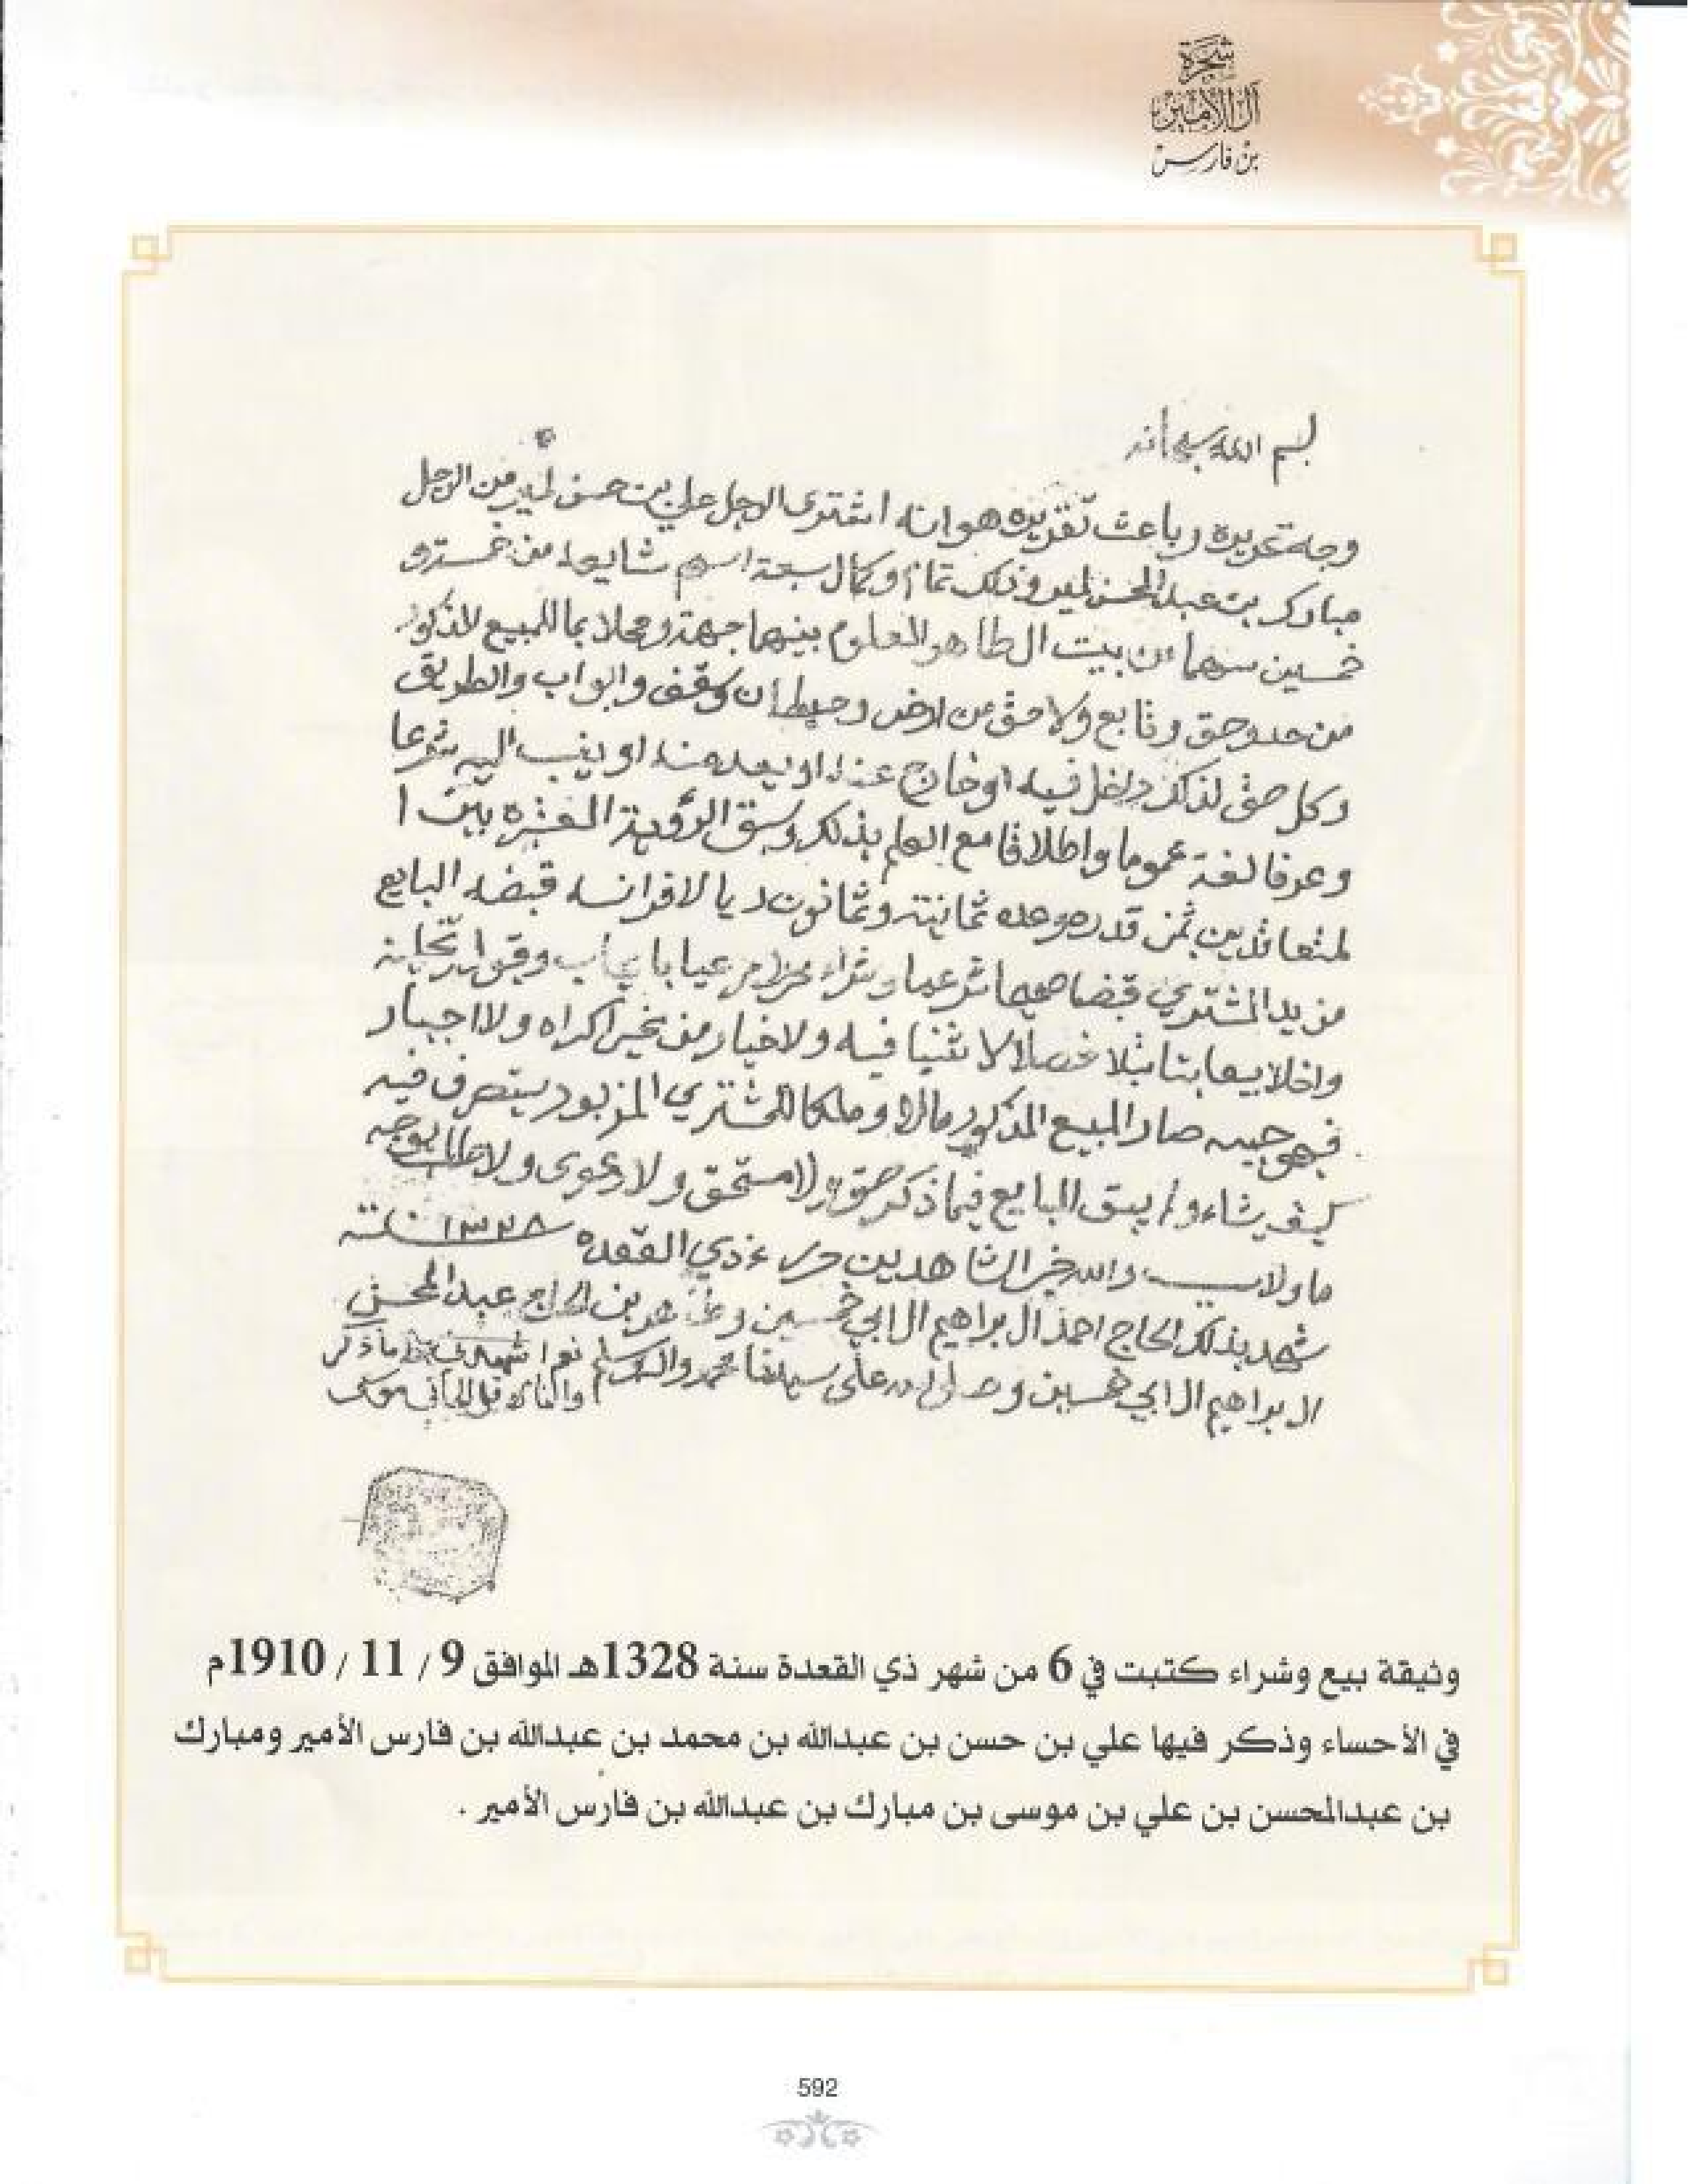 شجرة
آل الأمير
بن فارس
بسم الله سبحانه
وجه تحريره وباعث تقريره هو انه اشترى الرجل علي بن حسن لمير من الرجل
مبارك بن عبدالمحسن لمير وذلك تمام وكمال سبعة اسهم شايعا من خمسة و
خمسين سهما من بيت الطاهر المعلوم بينهما جهة ومحلا بما للمبيع المذكور
من حد وحق وتابع ولاحق من ارض وحيطان وسقف وابواب والطريق
وكل حق لذلك داخل فيه او خارج عنه او يعد منه او ينسب اليه شرعا
وعرفا لغة عموما واطلاقا مع العلم بذلك وسبق الرؤية المعتبره بين ا
لمتعاقدين بثمن قدره وعده ثمانية وثمانون ريالا فرانسه قبضه البايع
من يد المشتري قبضا صحيحا شرعيا وشراء مرعيا بايجاب وقبول وتخلية
واخلا بيعا بتا بتلا فصلا لا ثنيا فيه ولا خيار من غير اكراه ولا اجبار
فبموجبه صار المبيع المذكور مالا وملكا للمشتري المزبور يتصرف فيه
كيف يشاء ولم يبق للبايع فيما ذكر حق ولا مستحق ولا دعوى ولا طلب بوجه
ما ولا سبب والله خير الشاهدين ذي القعده سنة ١٣٢٨
شهد بذلك الحاج احمد ال براهيم ال ابي خمسين وطاهر بن الحاج عبدالمحسن
ال براهيم ال ابي خمسين وصلى الله على سيدنا محمد واله وسلم نعم ما ذكر
وانا الاقل الجاني موسى
وثيقة بيع وشراء كتبت في 6 من شهر ذي القعدة سنة 1328هـ الموافق 9 / 11 / 1910م
في الأحساء وذكر فيها علي بن حسن بن عبدالله بن محمد بن عبدالله بن فارس الأمير ومبارك
بن عبدالمحسن بن علي بن موسى بن مبارك بن عبدالله بن فارس الأمير .
592